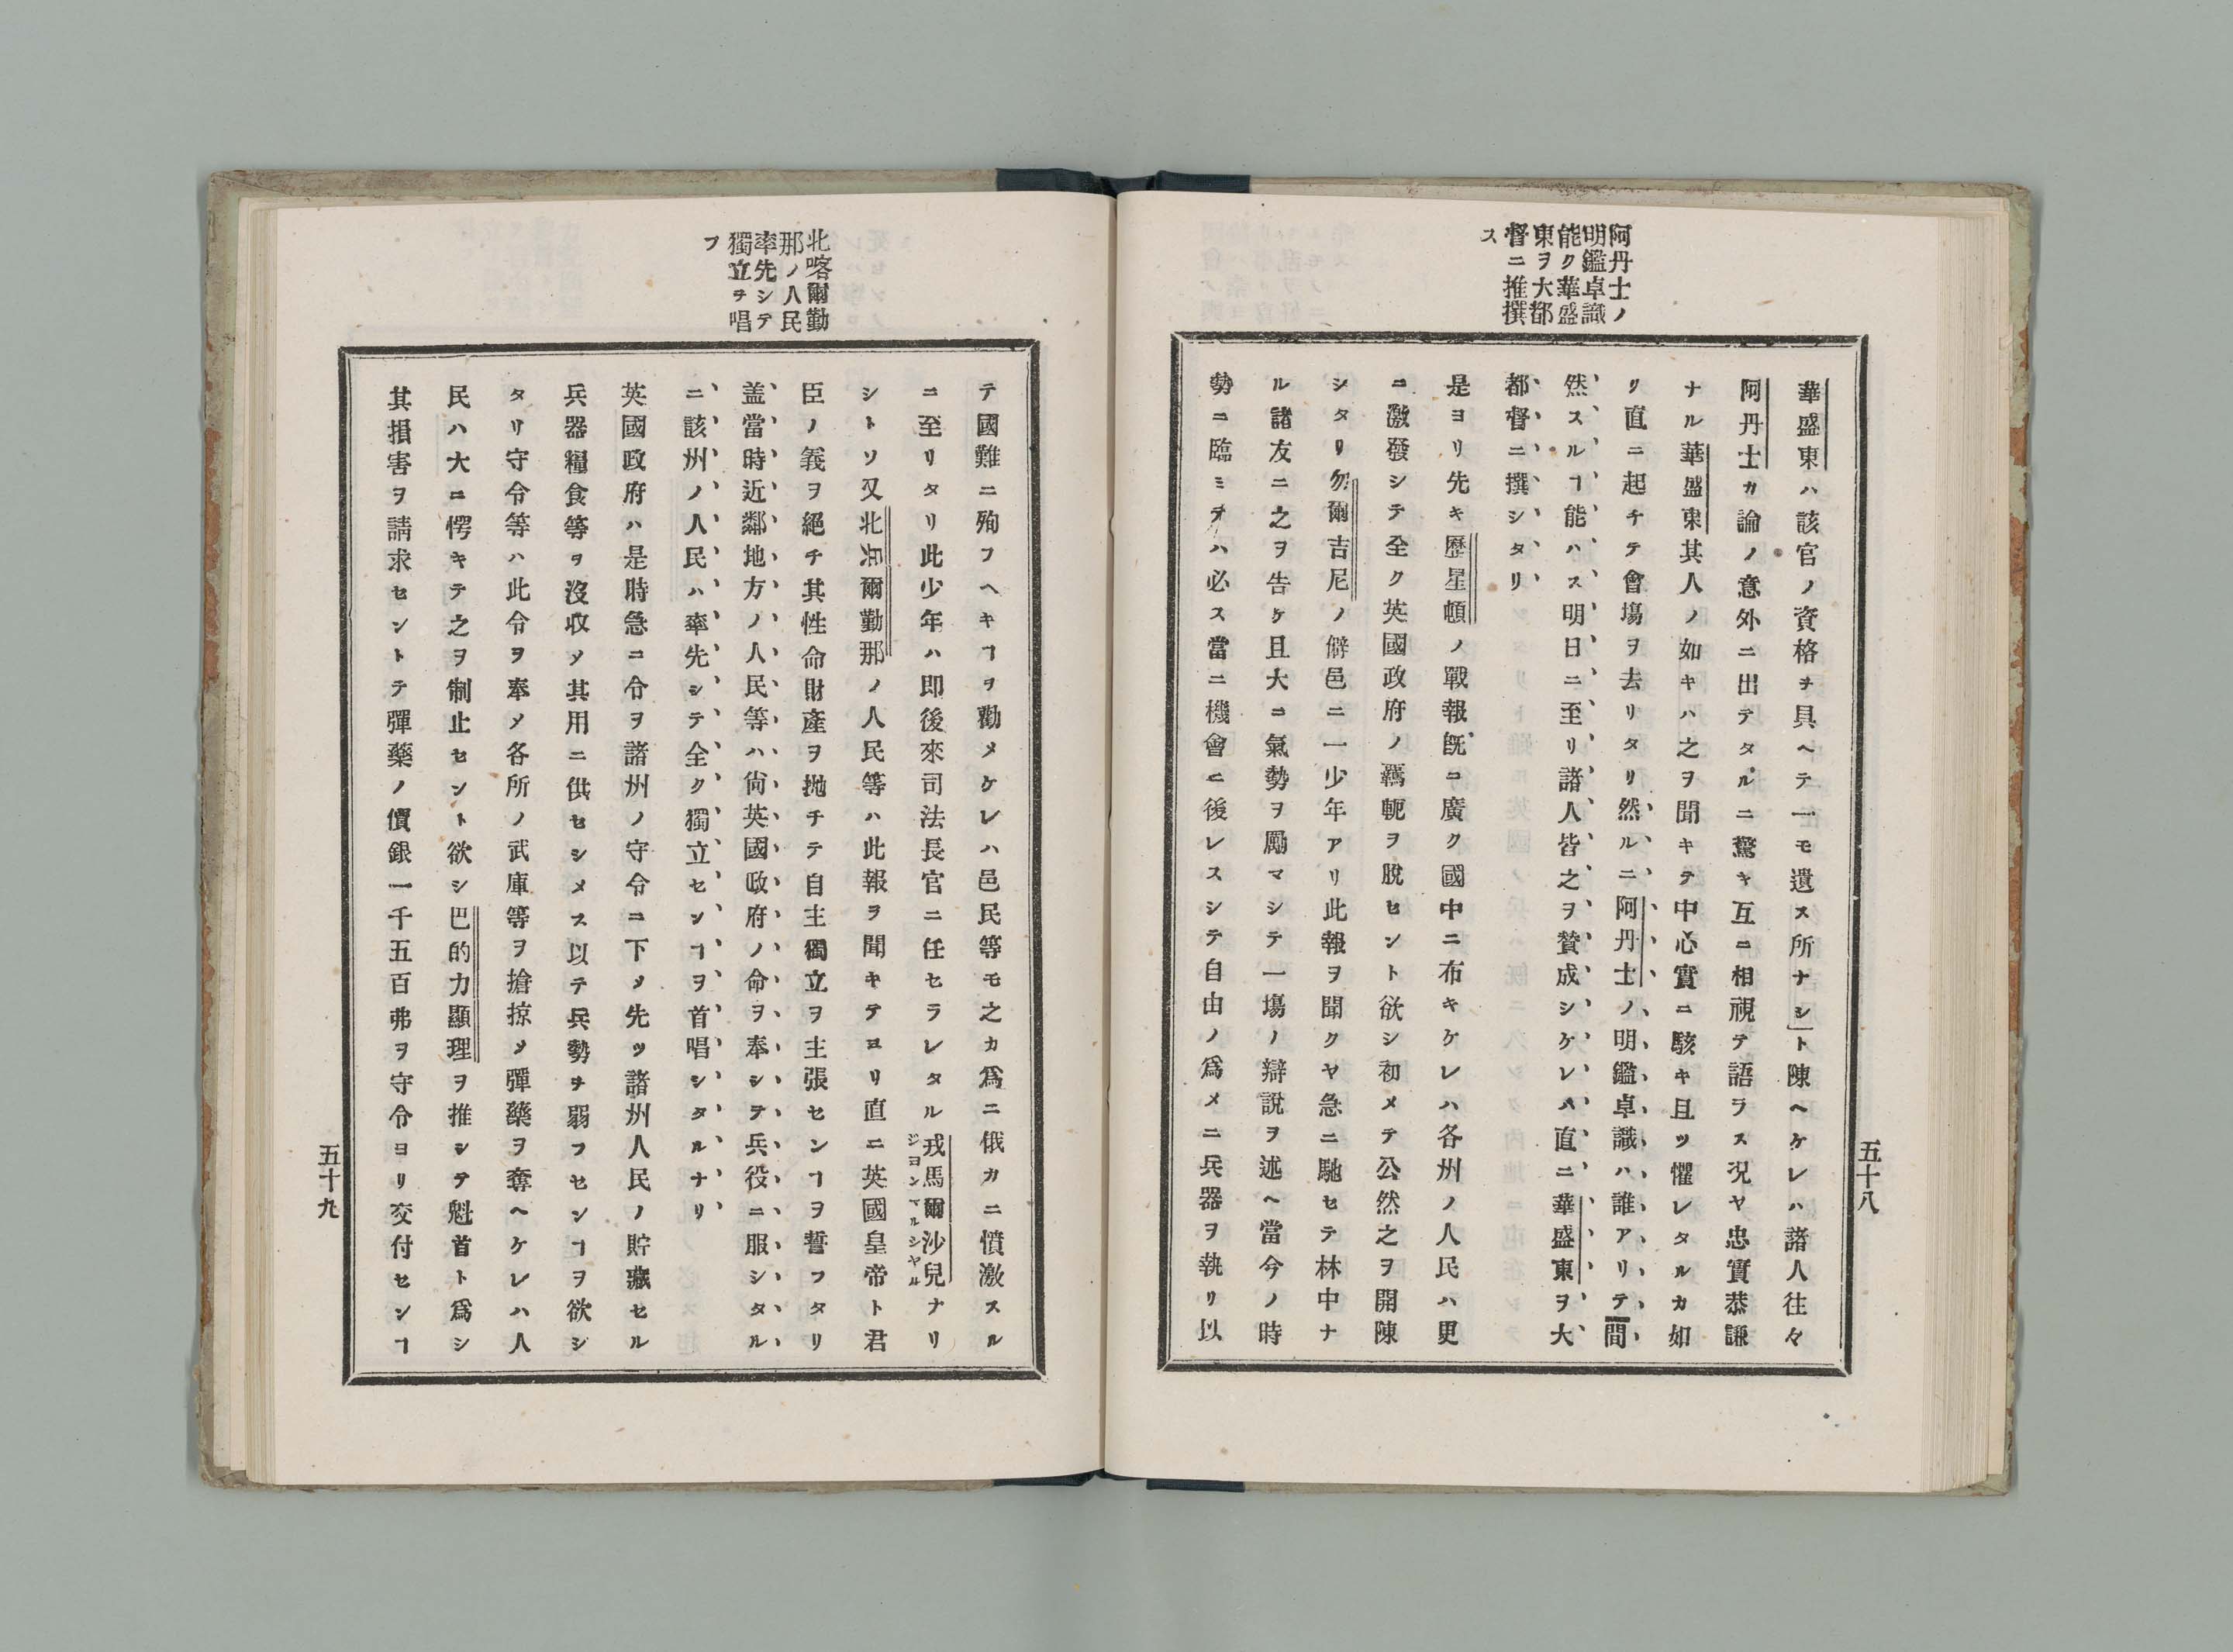 阿丹士ノ
明鑑卓識
能ク華盛
東ヲ大都
督ニ推撰
ス
華盛東ハ該官ノ資格ヲ具ヘテ一モ遺ス所ナシ」ト陳ヘケレハ諸人往々
阿丹士カ論ノ意外ニ出テタルニ驚キ互ニ相視テ語ラス况ヤ忠實恭謙
ナル華盛東其人ノ如キハ之ヲ聞キテ中心實ニ駭キ且ツ懼レタルカ如
リ直ニ起チテ會塲ヲ去リタリ然ルニ阿丹士ノ明鑑卓識ハ誰アリテ間
然スルヿ能ハス明日ニ至リ諸人皆之ヲ賛成シケレハ直ニ華盛東ヲ大
都督ニ撰シタリ
是ヨリ先キ歷星頓ノ戰報既ニ廣ク國中ニ布キケレハ各州ノ人民ハ更
ニ激發シテ全ク英國政府ノ羈軛ヲ脫セント欲シ初メテ公然之ヲ開陳
シタリ勿爾吉尼ノ僻邑ニ一少年アリ此報ヲ聞クヤ急ニ馳セテ林中ナ
ル諸友ニ之ヲ告ケ且大ニ氣勢ヲ勵マシテ一塲ノ辯說ヲ述ヘ當今ノ時
勢ニ臨ミテハ必ス當ニ機會ニ後レスシテ自由ノ爲メニ兵器ヲ執リ以
五十八
北喀爾勤
那ノ人民
率先シテ
獨立ヲ唱
フ
テ國難ニ殉フヘキヿヲ勸メケレハ邑民等モ之カ爲ニ俄カニ憤激スル
ニ至リタリ此少年ハ即後來司法長官ニ任セラレタル戎馬爾沙兒ナリ
ジヨンマルシヤル
シトソ又北喀爾勤那ノ人民等ハ此報ヲ聞キテヨリ直ニ英國皇帝ト君
臣ノ義ヲ絕チ其性命財產ヲ抛チテ自主獨立ヲ主張センヿヲ誓フタリ
盖當時近鄰地方ノ人民等ハ尙英國政府ノ命ヲ奉シテ兵役ニ服シタル
ニ該州ノ人民ハ率先シテ全ク獨立センヿヲ首唱シタルナリ
英國政府ハ是時急ニ令ヲ諸州ノ守令ニ下メ先ツ諸州人民ノ貯藏セル
兵器糧食等ヲ沒收メ其用ニ供セシメス以テ兵勢ヲ弱フセンヿヲ欲シ
タリ守令等ハ此令ヲ奉メ各所ノ武庫等ヲ搶掠メ彈藥ヲ奪ヘケレハ人
民ハ大ニ愕キテ之ヲ制止セント欲シ巴的力顯理ヲ推シテ魁首ト爲シ
其損害ヲ請求セントテ彈藥ノ價銀一千五百弗ヲ守令ヨリ交付センヿ
五十九